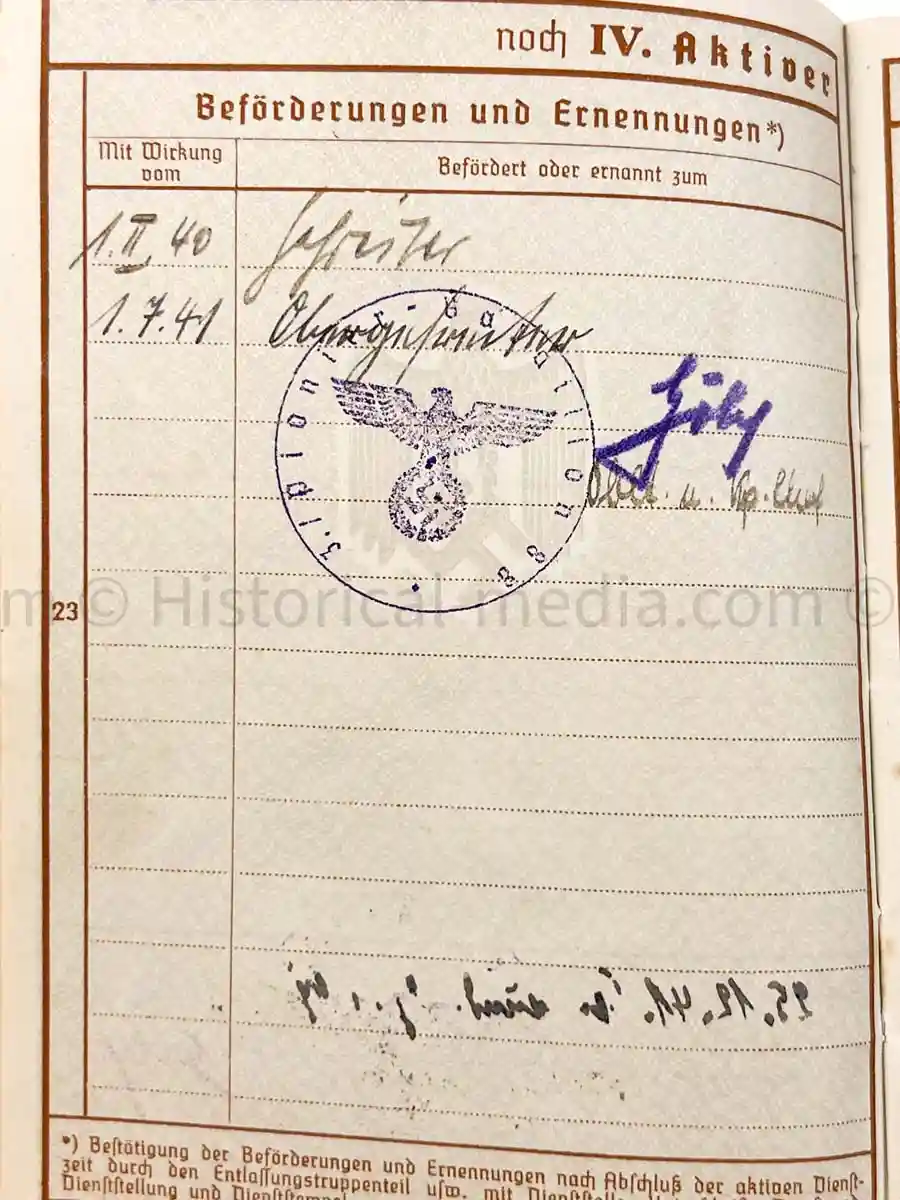 noch IV. Aktiver
Beförderungen und Ernennungen*)
Mit Wirkung vom
Befördert oder ernannt zum
1.II.40
1.7.41 Obergefreiter
3./Pionierbataillon 88
Oblt. u. Kp.Chef
23
m © Historical-media.com ©
25.12.41.
*) Bestätigung der Beförderungen und Ernennungen nach Abschluß der aktiven Dienst-
zeit durch den Entlassungstruppenteil usw. mit
Dienststellung und Dienststempel